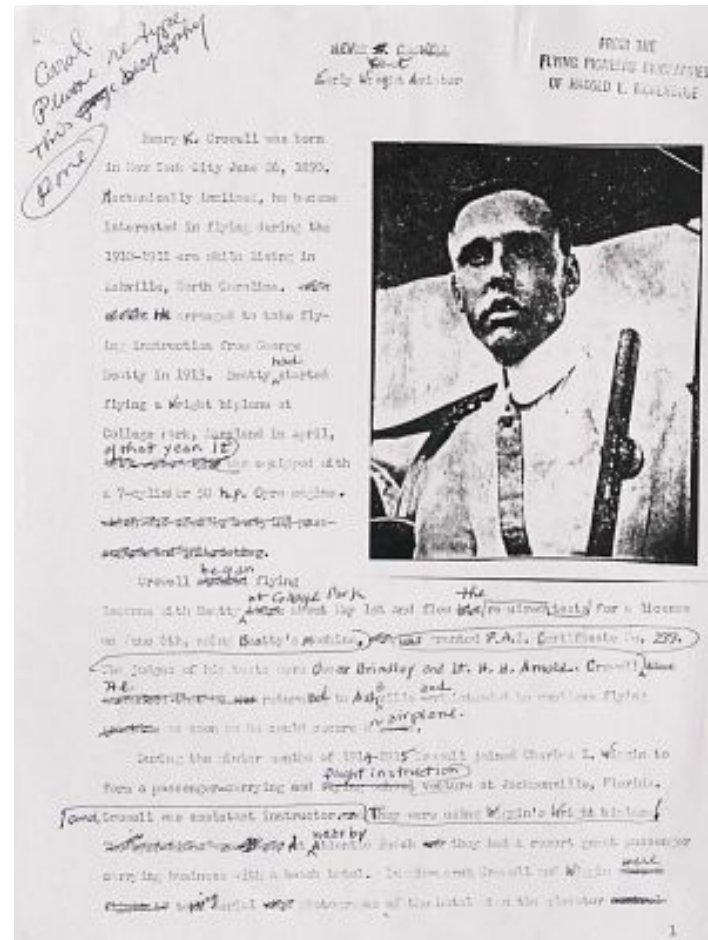 Carol.
Please re-type
this biography
Done
HENRY K. CROWELL
Early Wright Aviator
FROM THE
FLYING PIONEERS BIOGRAPHIES
OF HAROLD E. MOREHOUSE
Henry K. Crowell was born
in New York City June 26, 1893.
Mechanically inclined, he became
interested in flying during the
1910-1911 era while living in
Ashville, North Carolina.
He arranged to take fly-
ing instruction from George
had
Beatty in 1913. Beatty started
flying a Wright biplane at
College Park, Maryland in April,
of that year It
was equipped with
a 7-cylinder 50 h.p. Gyro engine.
began
Crowell flying
at College Park the
lessons with Beatty about May 1st and flew required tests for a license
on June 6th, using Beatty's machine, was granted F.A.I. Certificate No. 239.
The judges of his tests were Oscar Brindley and Lt. H. H. Arnold. Crowell
He
returned to Asheville and intended to continue flying
as soon as he could secure airplane.
During the winter months of 1914-1915 Crowell joined Charles L. Wiggin to
flight instruction
form a passenger-carrying and venture at Jacksonville, Florida.
and Crowell was assistant instructor. They were using Wiggin's Wright biplane
nearby
At Atlantic Beach they had a resort guest passenger
carrying business with a beach hotel. Crowell and Wiggin were
aerial photographs of the hotel
1